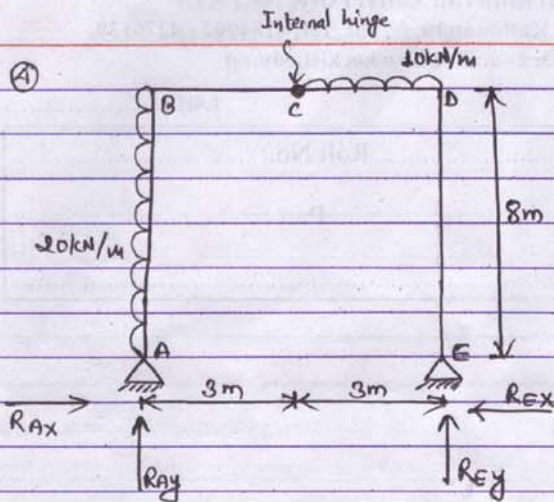 Internal hinge
A
B
C
20kN/m
D
20kN/m
8m
A
E
3m
3m
RAX
REX
RAy
REy